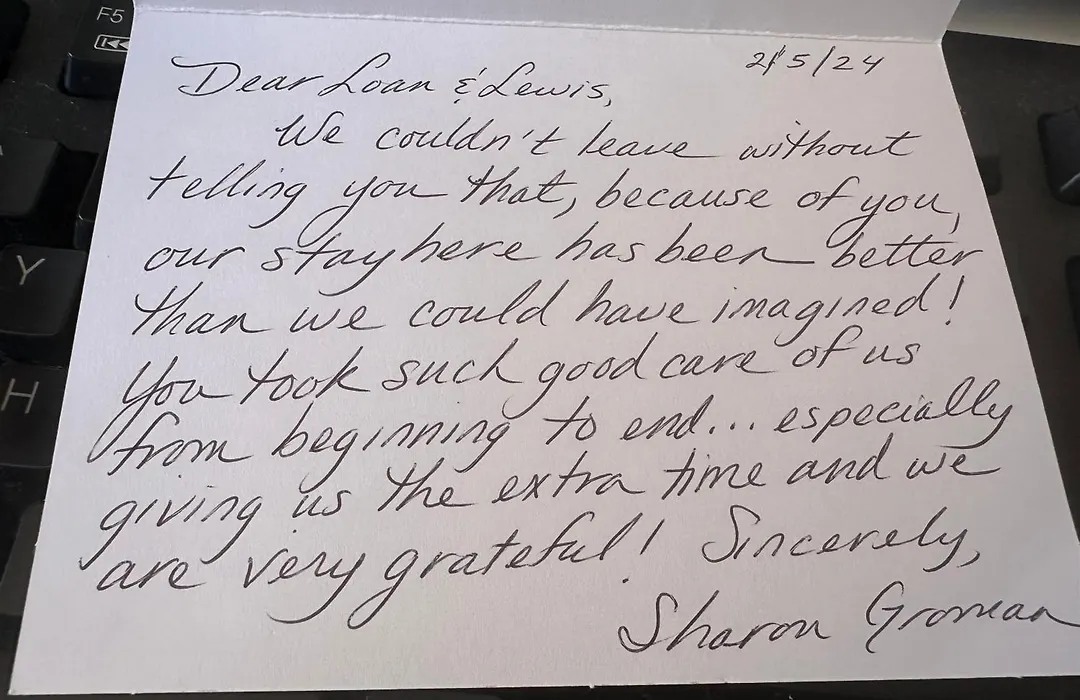 F5
Y
H
2/5/24
Dear Loan & Lewis,
We couldn't leave without
telling you that, because of you,
our stay here has been better
than we could have imagined!
You took such good care of us
from beginning to end... especially
giving us the extra time and we
are very grateful! Sincerely,
Sharon Groman